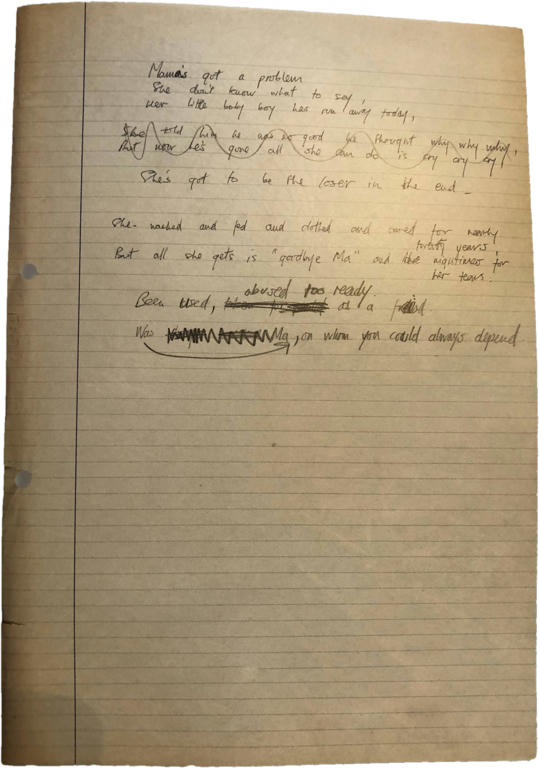 Mama's got a problem
She don't know what to say,
Her little baby boy has run away today,
She told him he was no good he thought why why why,
But now he's gone all she can do is cry cry cry
She's got to be the loser in the end -
She washed and fed and clothed and cared for nearly
years,
But all she gets is "goodbye Ma" and the nightimes for
her tears.
abused too ready.
Been used, as a
Was Ma, on whom you could always depend